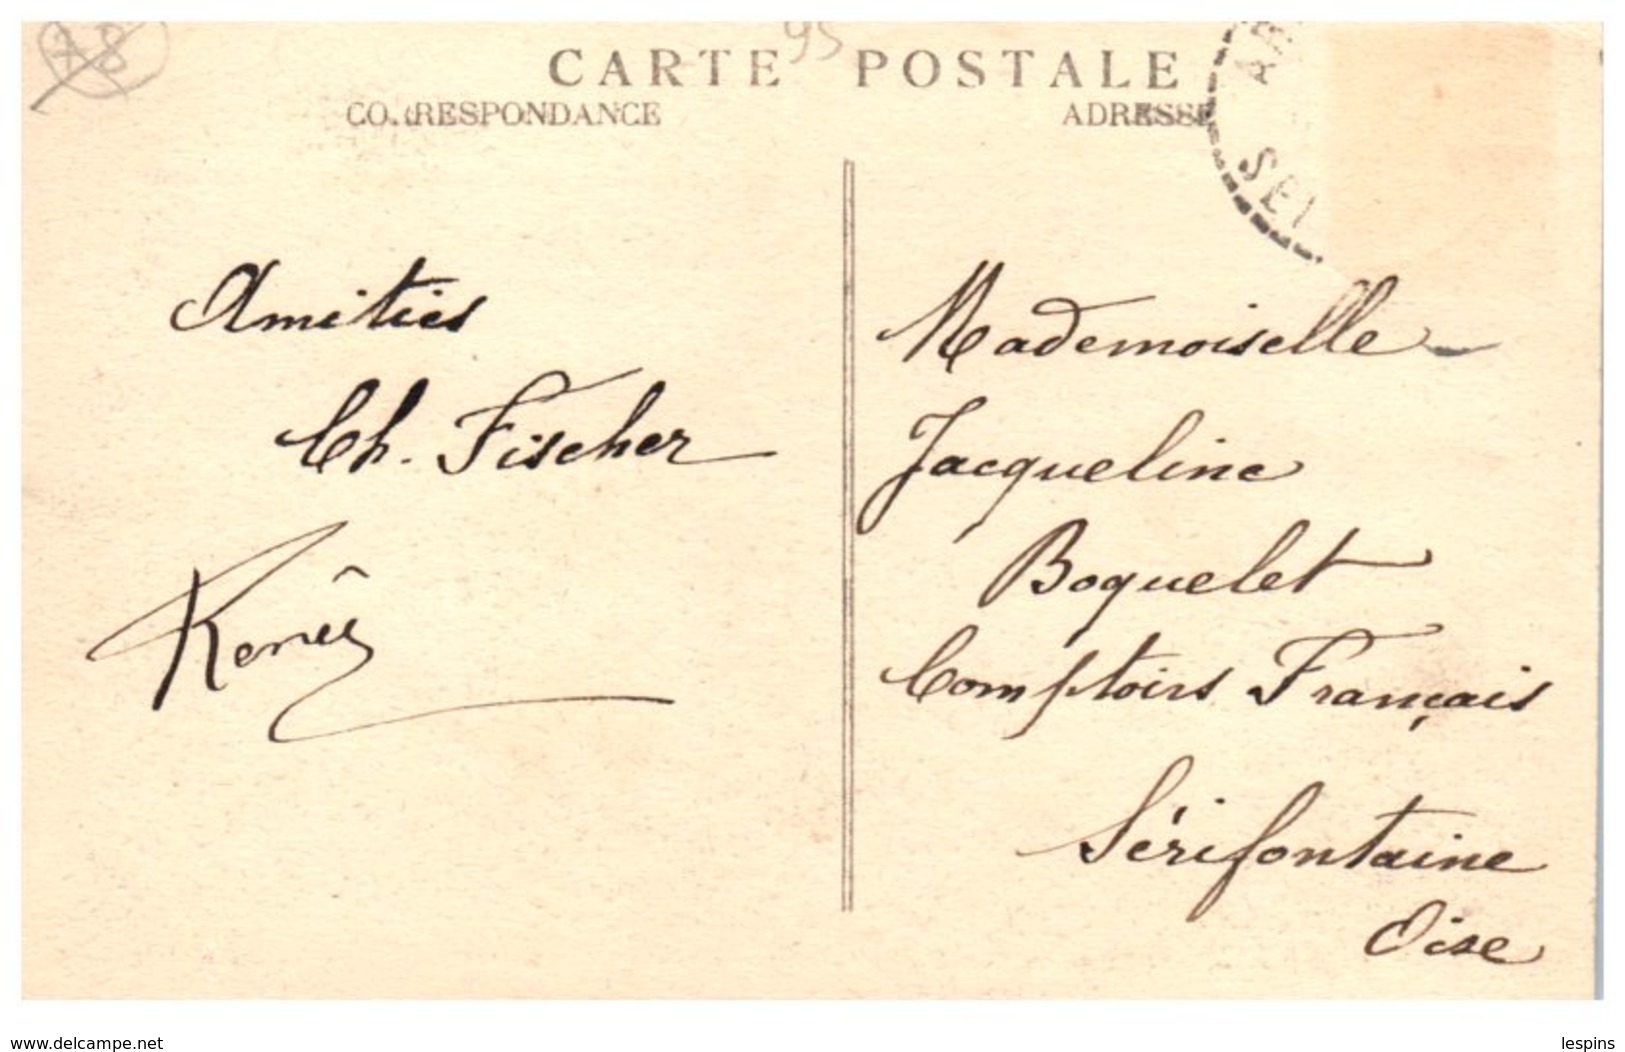 78
95
CARTE POSTALE
CORRESPONDANCE
ADRESSE
AR
SEI
Amitiés
Ch. Fischer
Renée
Mademoiselle
Jacqueline
Boquelet
Comptoirs Français
Sérifontaine
Oise
www.delcampe.net
lespins